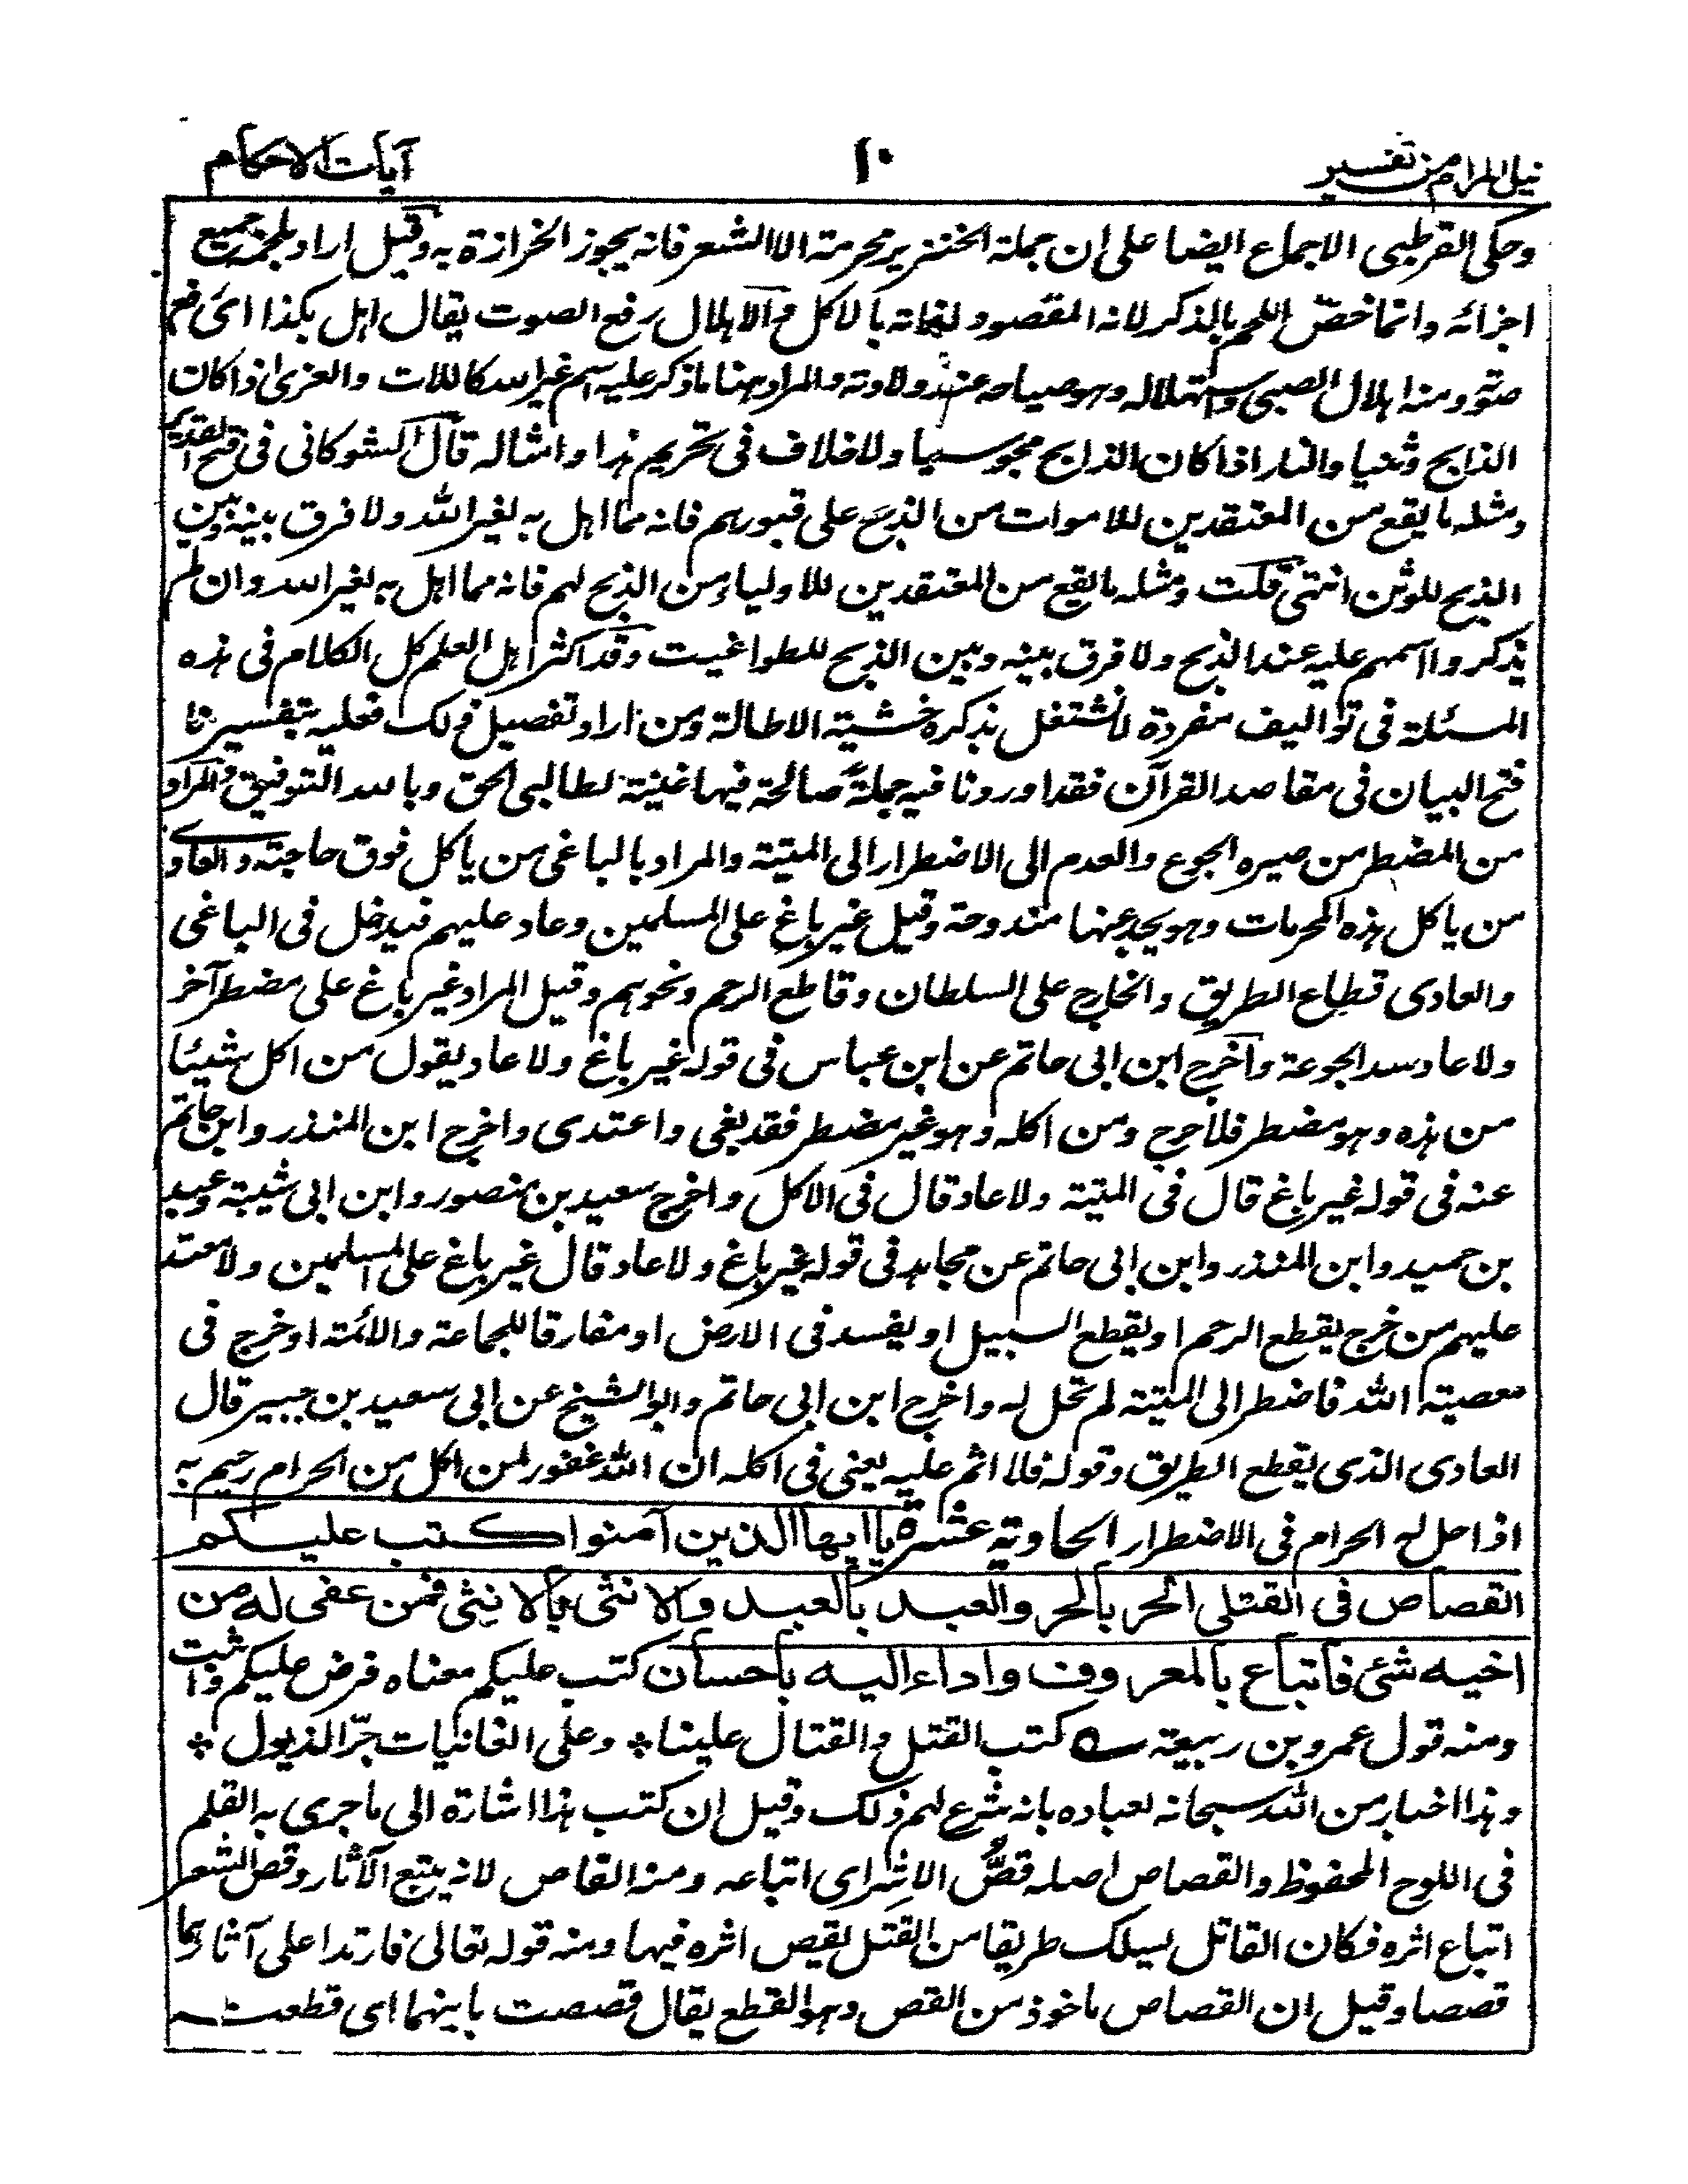 نيل المرام من تفسير
١٠
آيات الاحكام
وحكى القرطبى الاجماع ايضا على ان جملة الخنزير محرمة الا الشعر فانه يجوز الخرازة به وقيل اراد بلحمه جميع
اجزائه وانما خصّ اللحم بالذكر لانه المقصود لذاته بالاكل والاهلال رفع الصوت يقال اهل بكذا اى رفع
صوته ومنه اهلال الصبى واستهلاله وهو صياحه عند ولادته والمراد هنا ما ذكر عليه اسم غير الله كاللات والعزى اذا كان
الذابح وثنيا والنار اذا كان الذابح مجوسيا ولا خلاف فى تحريم هذا وامثاله قال الشوكانى فى فتح القدير
ومثله ما يقع من المعتقدين للاموات من الذبح على قبورهم فانه مما اهل به لغير الله ولا فرق بينه وبين
الذبح للوثن انتهى قلت ومثله ما يقع من المعتقدين للاولياء من الذبح لهم فانه مما اهل به لغير الله وان لم
يذكروا اسمهم عليه عند الذبح ولا فرق بينه وبين الذبح للطواغيت وقد اكثر اهل العلم كل الكلام فى هذه
المسئلة فى تواليف مفردة لا نشتغل بذكره خشية الاطالة ومن اراد تفصيل ذلك فعليه بتفسيرنا
فتح البيان فى مقاصد القرآن فقد اوردنا فيه جملة صالحة فيها غنية لطالبى الحق وبالله التوفيق والمراد
من المضطر من صيره الجوع والعدم الى الاضطرار الى الميتة والمراد بالباغى من ياكل فوق حاجته والعادى
من ياكل هذه المحرمات وهو يجد عنها مندوحة وقيل غير باغ على المسلمين وعاد عليهم فيدخل فى الباغى
والعادى قطاع الطريق والخارج على السلطان وقاطع الرحم ونحوهم وقيل المراد غير باغ على مضطر آخر
ولا عاد سد الجوعة واخرج ابن ابى حاتم عن ابن عباس فى قوله غير باغ ولا عاد يقول من اكل شيئا
من هذه وهو مضطر فلا حرج ومن اكله وهو غير مضطر فقد بغى واعتدى واخرج ابن المنذر وابن حاتم
عنه فى قوله غير باغ قال فى الميتة ولا عاد قال فى الاكل واخرج سعيد بن منصور وابن ابى شيبة وعبد
بن حميد وابن المنذر وابن ابى حاتم عن مجاهد فى قوله غير باغ ولا عاد قال غير باغ على المسلمين ولا معتد
عليهم من خرج يقطع الرحم او يقطع السبيل او يفسد فى الارض او مفارقا للجماعة والائمة او خرج فى
معصية الله فاضطر الى الميتة لم تحل له واخرج ابن ابى حاتم وابو الشيخ عن ابى سعيد بن جبير قال
العادى الذى يقطع الطريق وقوله فلا اثم عليه يعنى فى اكله ان الله غفور لمن اكل من الحرام رحيم به
اذا احل له الحرام فى الاضطرار الحاوية عشرة يا ايها الذين آمنوا كتب عليكم
القصاص فى القتلى الحر بالحر والعبد بالعبد والانثى بالانثى فمن عفى له من
اخيه شئ فاتباع بالمعروف واداء اليه باحسان كتب عليكم معناه فرض عليكم واثبت
ومنه قول عمرو بن ربيعة ؎ كتب القتل والقتال علينا * وعلى الغانيات جرّ الذيول *
وهذا اخبار من الله سبحانه لعباده بانه شرع لهم ذلك وقيل ان كتب هذا اشارة الى ما جرى به القلم
فى اللوح المحفوظ والقصاص اصله قصُّ الاثر اى اتباعه ومنه القاص لانه يتبع الآثار وقص الشعر
اتباع اثره فكان القاتل يسلك طريقا من القتل يقص اثره فيها ومنه قوله تعالى فارتدا على آثارهما
قصصا وقيل ان القصاص ماخوذ من القص وهو القطع يقال قصصت ما بينهما اى قطعت